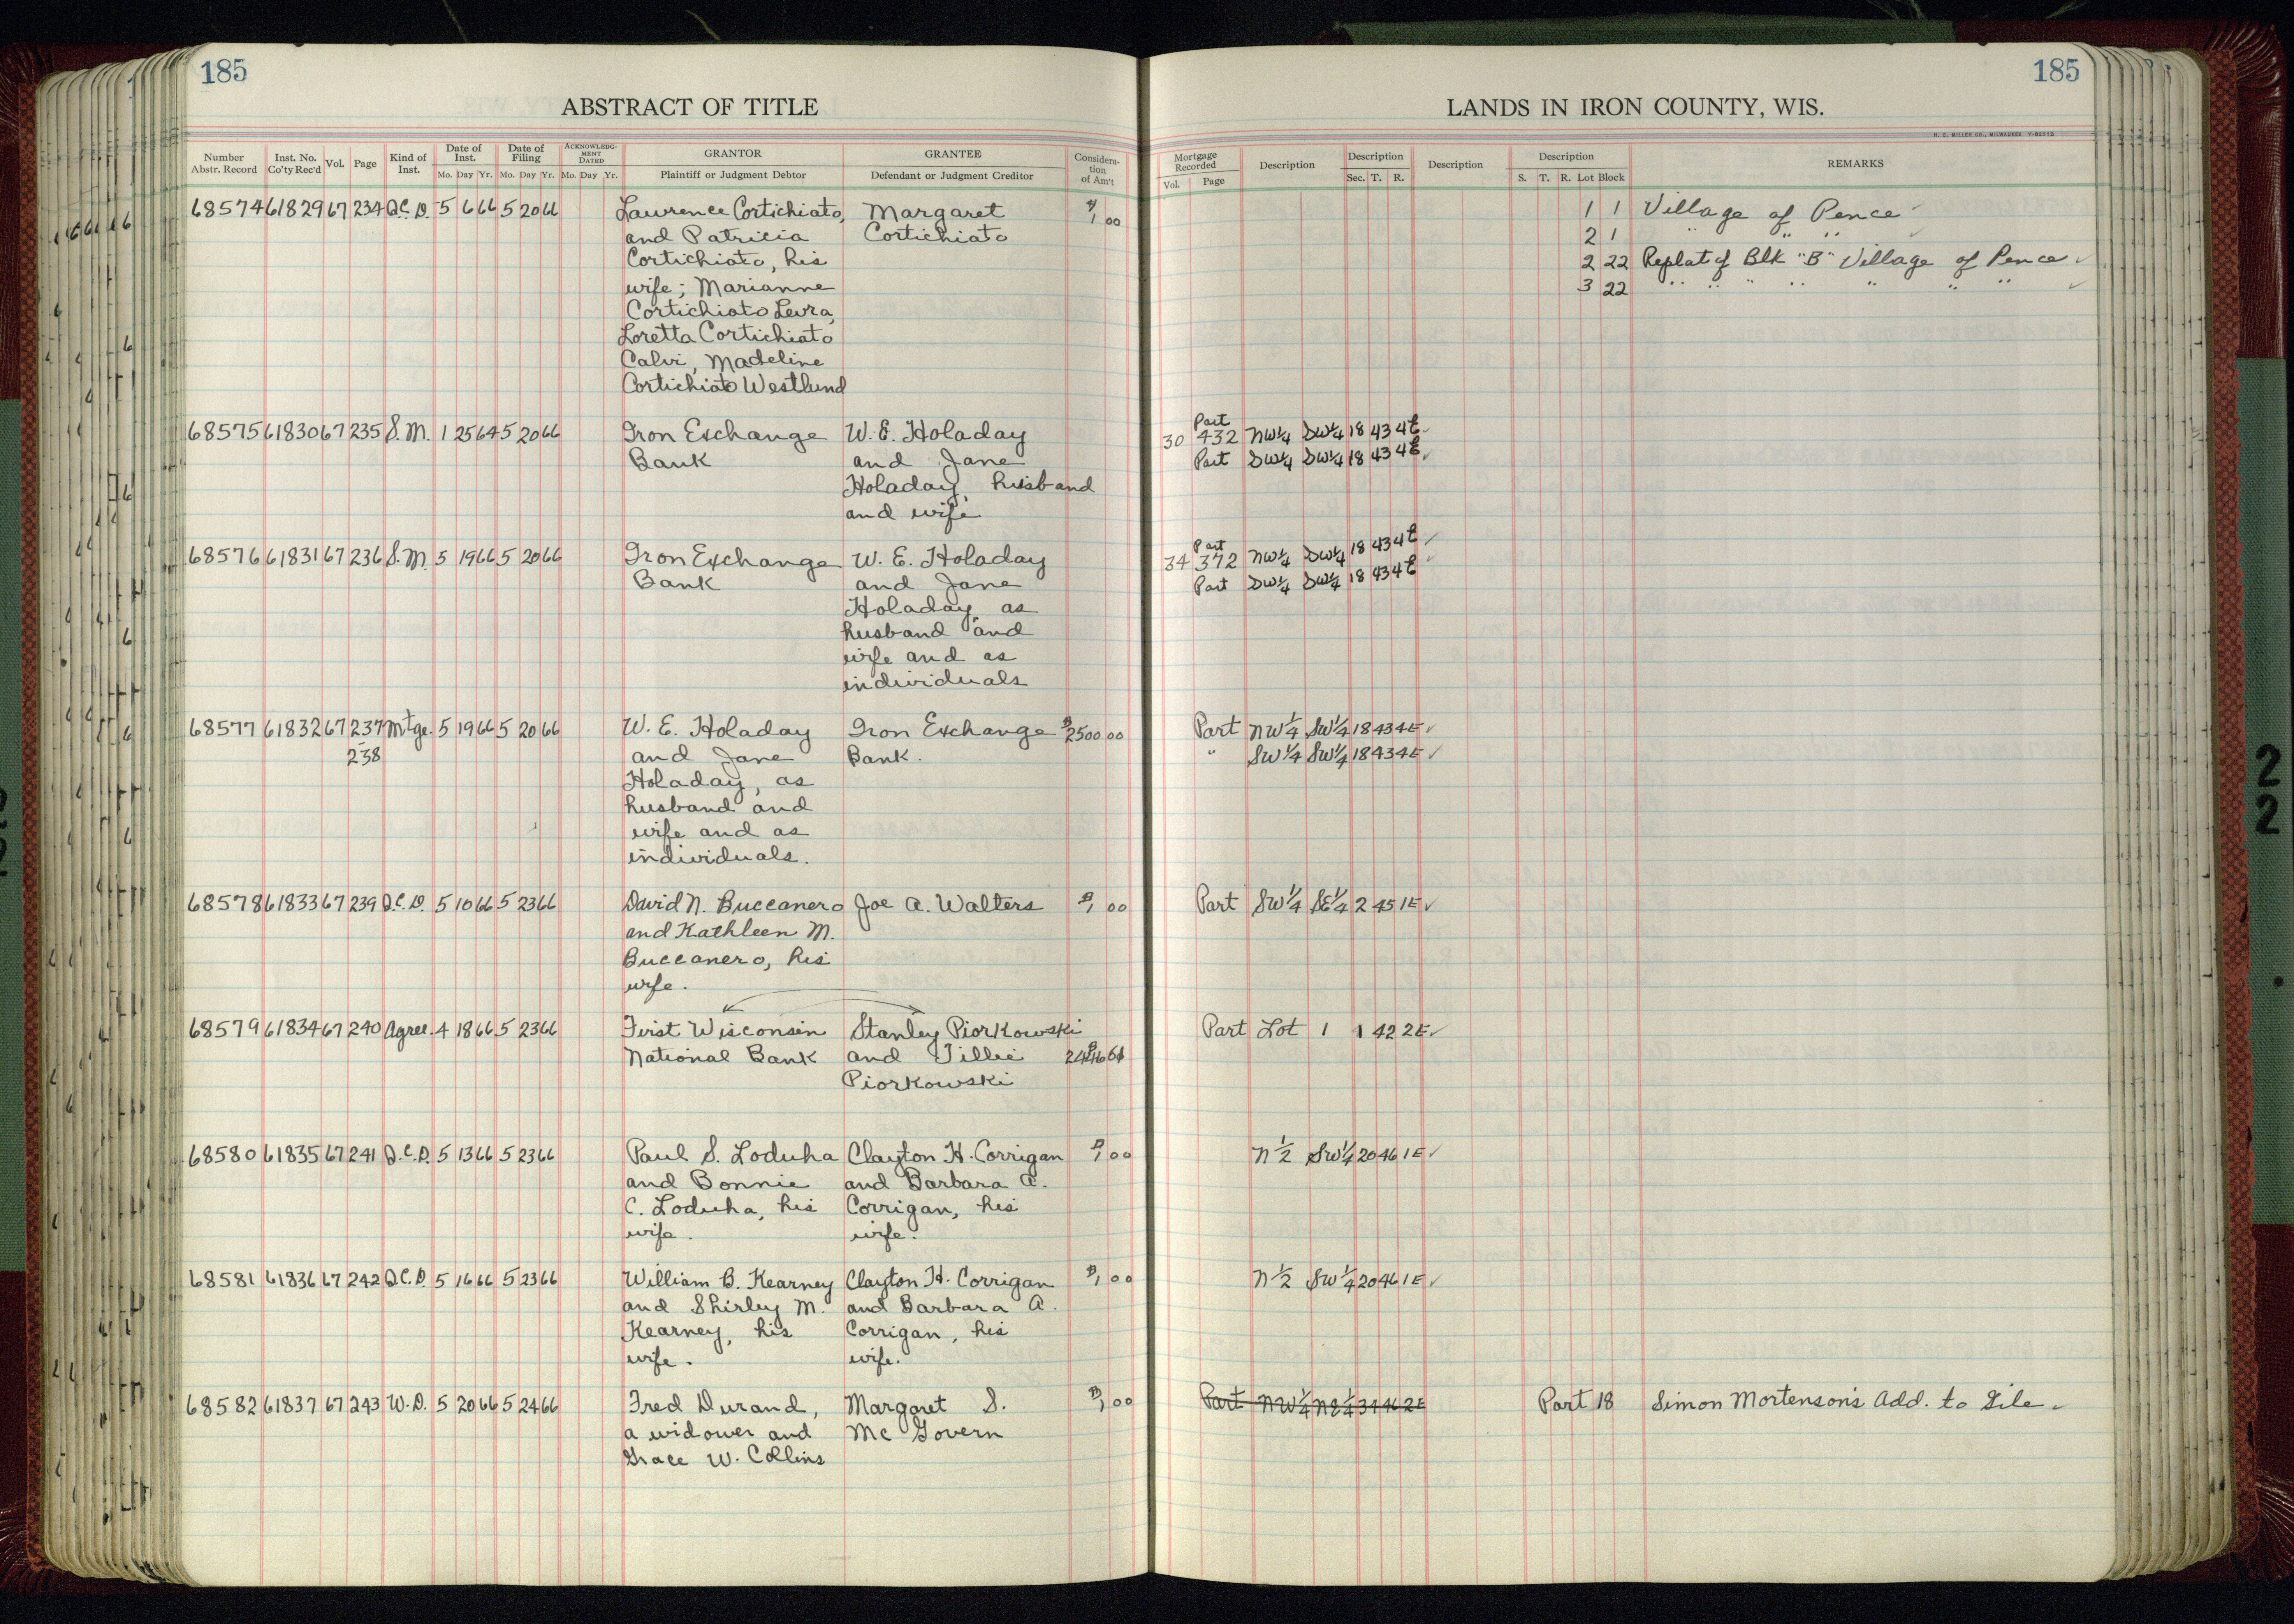 185
ABSTRACT OF TITLE
Number Abstr. Record | Inst. No. Co'ty Rec'd | Vol. | Page | Kind of Inst. | Date of Inst. Mo. Day Yr. | Date of Filing Mo. Day Yr. | ACKNOWLEDGMENT DATED Mo. Day Yr. | GRANTOR Plaintiff or Judgment Debtor | GRANTEE Defendant or Judgment Creditor | Consideration of Am't
68574 61829 67 234 Q.C.D. 5 6 66 5 20 66 Lawrence Cortichiato, Margaret $1 00
and Patricia Cortichiato
Cortichiato, his
wife; Marianne
Cortichiato Levra,
Loretta Cortichiato
Calvi, Madeline
Cortichiato Westlund
68575 61830 67 235 S.M. 1 25 64 5 20 66 Iron Exchange W. E. Holaday
Bank and Jane
Holaday, husband
and wife
68576 61831 67 236 S.M. 5 19 66 5 20 66 Iron Exchange W. E. Holaday
Bank and Jane
Holaday, as
husband and
wife and as
individuals
68577 61832 67 237 Mtge. 5 19 66 5 20 66 W. E. Holaday Iron Exchange $2500 00
-238 and Jane Bank.
Holaday, as
husband and
wife and as
individuals.
68578 61833 67 239 Q.C.D. 5 10 66 5 23 66 David N. Buccanero Joe A. Walters $1 00
and Kathleen M.
Buccanero, his
wife.
68579 61834 67 240 Agree. 4 18 66 5 23 66 First Wisconsin Stanley Piorkowski
National Bank and Tillie
Piorkowski
68580 61835 67 241 Q.C.D. 5 13 66 5 23 66 Paul S. Loduha Clayton H. Corrigan $1 00
and Bonnie and Barbara A.
C. Loduha, his Corrigan, his
wife. wife.
68581 61836 67 242 Q.C.D. 5 16 66 5 23 66 William B. Kearney Clayton H. Corrigan $1 00
and Shirley M. and Barbara A.
Kearney, his Corrigan, his
wife. wife.
68582 61837 67 243 W.D. 5 20 66 5 24 66 Fred Durand, Margaret S. $1 00
a widower and Mc Govern
Grace W. Collins
185
LANDS IN IRON COUNTY, WIS.
H. C. MILLER CO., MILWAUKEE
Mortgage Recorded Vol. Page | Description | Description Sec. T. R. | Description | Description S. T. R. Lot Block | REMARKS
1 1 Village of Pence
2 1 " " "
2 22 Replat of Blk "B" Village of Pence
3 22 " " " " " " "
Part
30 432 NW¼ SW¼ 18 43 4E
Part SW¼ SW¼ 18 43 4E
Part
34 372 NW¼ SW¼ 18 43 4E
Part SW¼ SW¼ 18 43 4E
Part NW¼ SW¼ 18 43 4E
" SW¼ SW¼ 18 43 4E
Part SW¼ SE¼ 2 45 1E
Part Lot 1 1 42 2E
N½ SW¼ 20 46 1E
N½ SW¼ 20 46 1E
Part NW¼ NE¼ 34 46 2E Part 18 Simon Mortenson's Add. to Gile
2
2